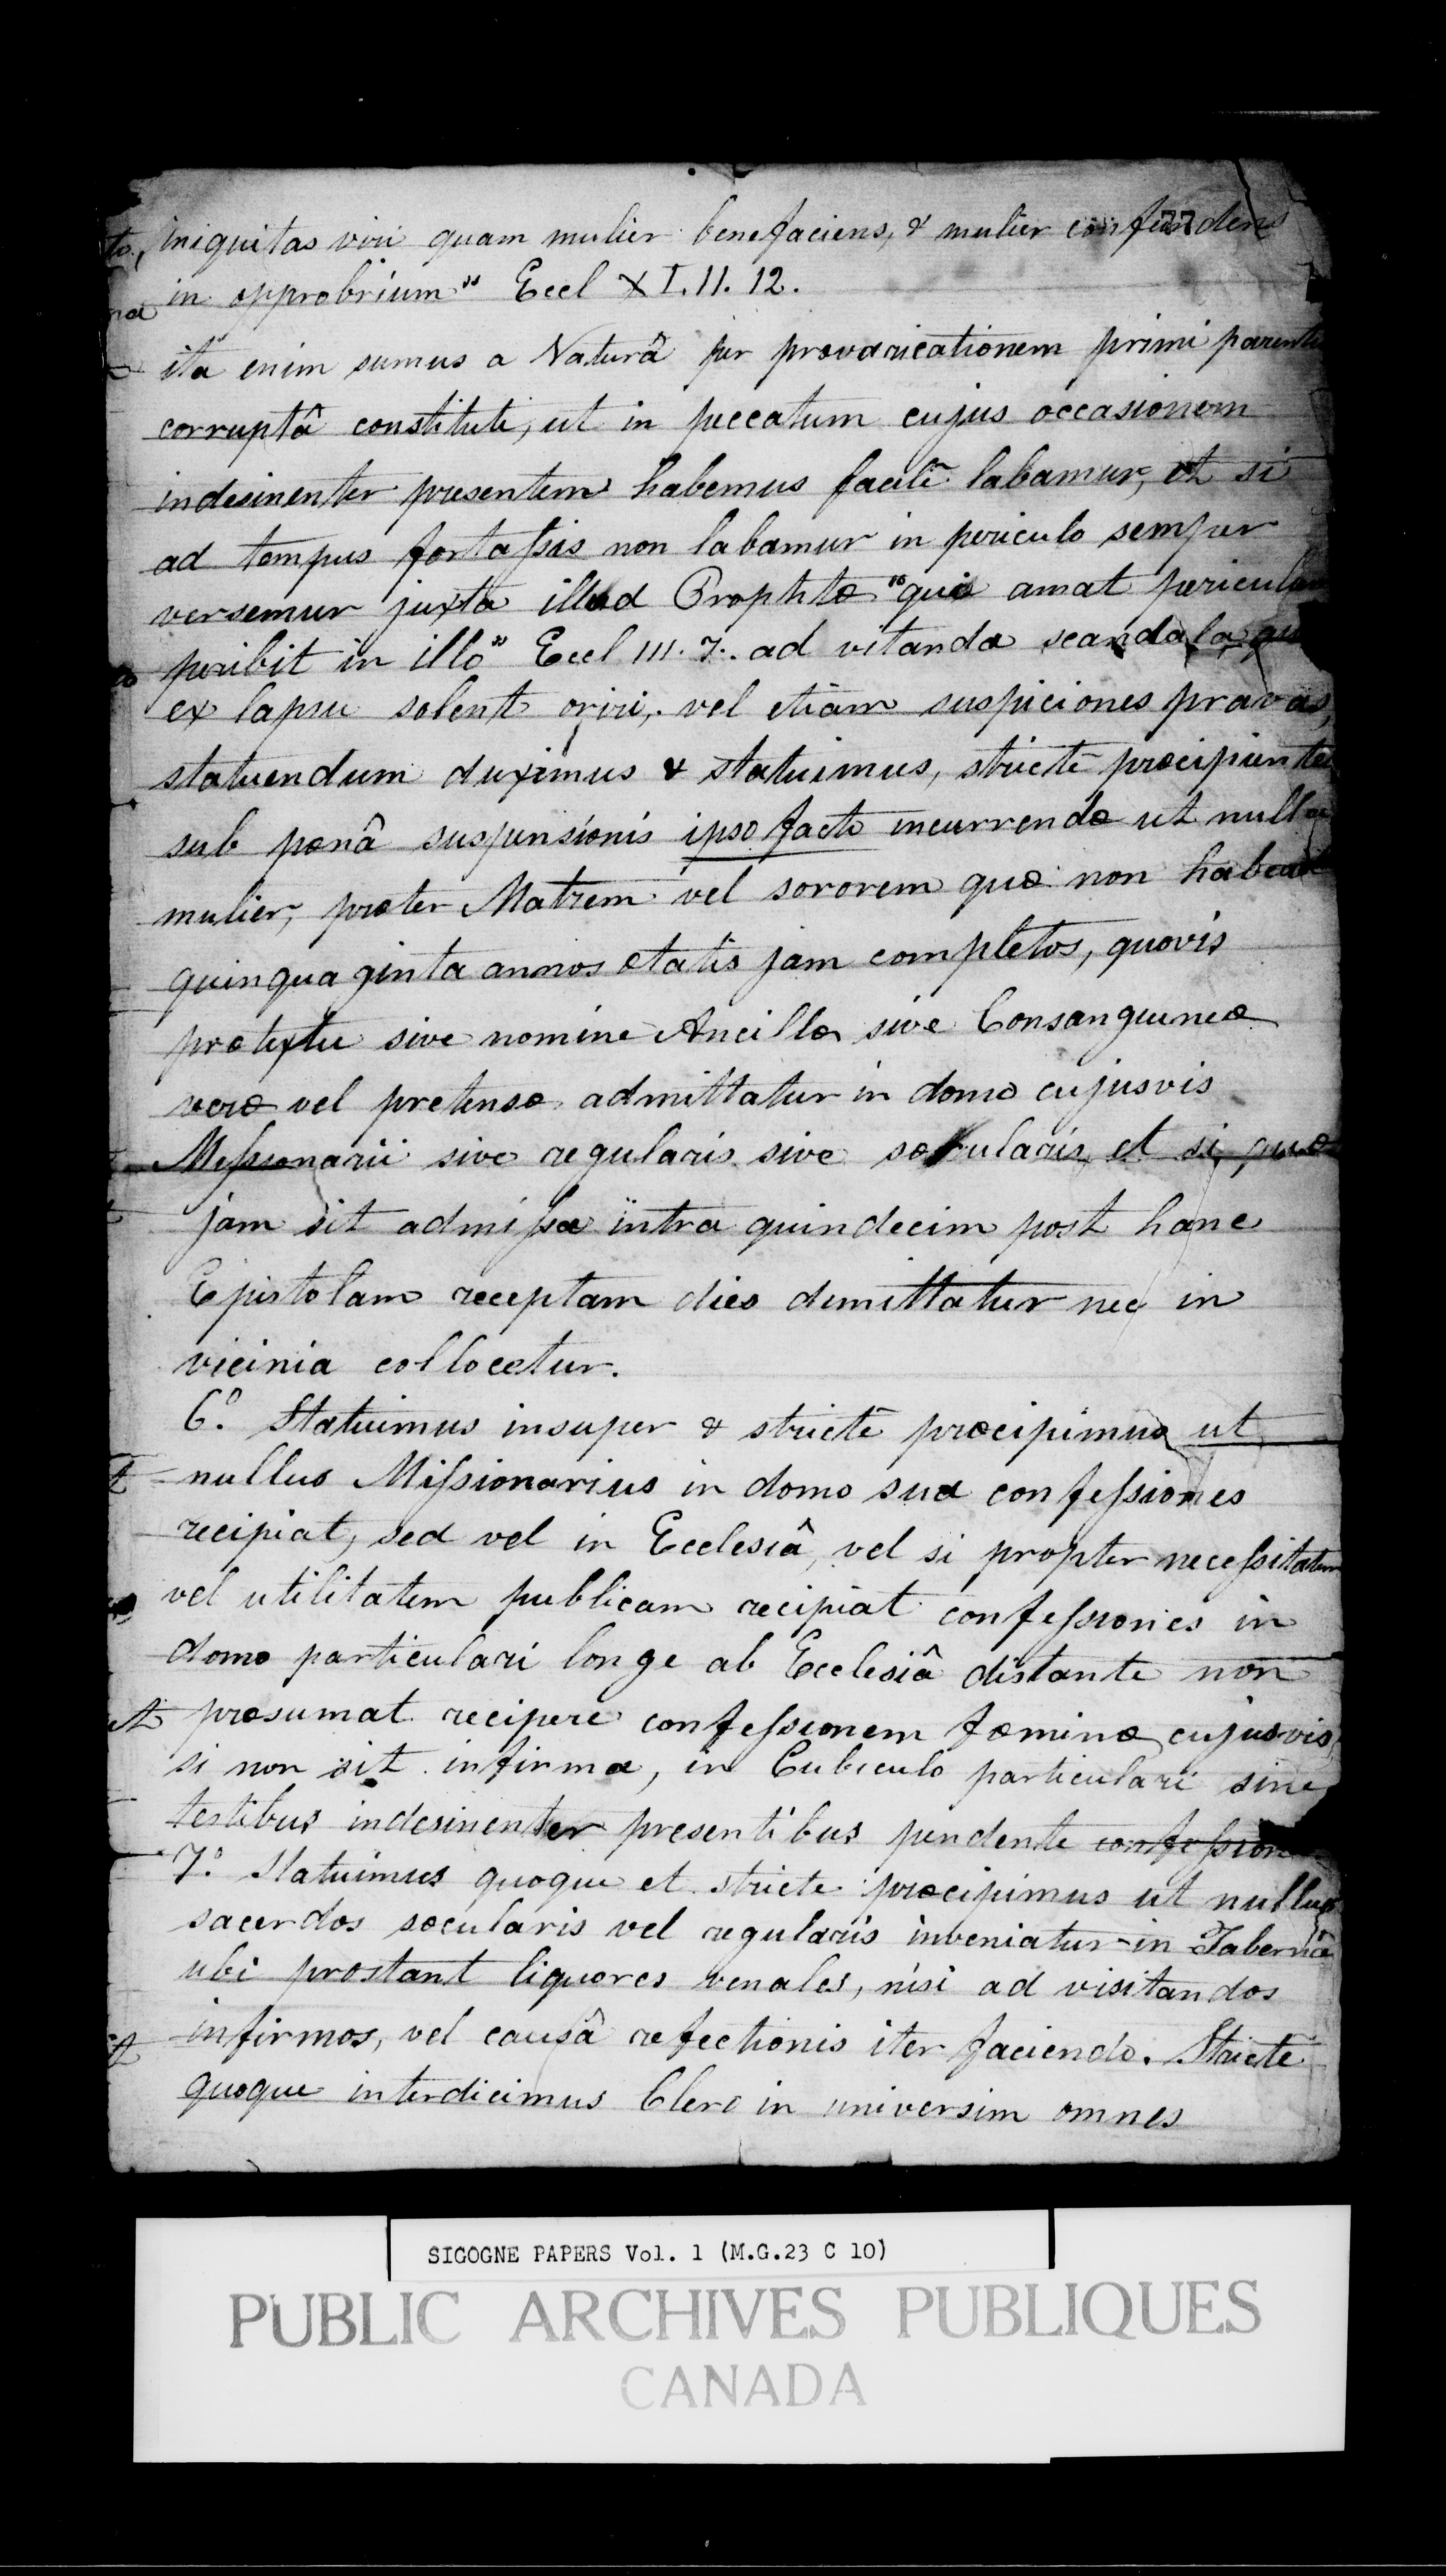 iniquitas viri quam mulier benefaciens, & mulier confundens
77
in opprobrium" Eccl XI. 11. 12.
ita enim sumus a Naturâ per prævaricationem primi parentis
corruptâ constituti, ut in peccatum cujus occasionem
indesinenter presentem habemus facilè labamur, et si
ad tempus fortassis non labamur in periculo semper
versemur juxta illud Prophtæ "qui amat periculum
peribit in illo" Eccl III. 7. ad vitanda scandala quæ
ex lapsu solent oriri, vel etiam suspiciones pravas,
statuendum duximus & statuimus, strictè præcipientes
sub pœnâ suspensionis ipso facto incurrendæ ut nulla
mulier, præter Matrem vel sororem quæ non habeat
quinquaginta annos ætatis jam completos, quovis
prætextu sive nomine Ancillæ sive Consanguineæ
veræ vel pretensæ admittatur in domo cujusvis
Missionarii sive regularis sive sæcularis, et si quæ
jam sit admissa intra quindecim post hanc
Epistolam receptam dies dimittatur nec in
vicinia collocetur.
6.º Statuimus insuper & strictè præcipimus ut
nullus Missionarius in domo sua confessiones
recipiat, sed vel in Ecclesiâ, vel si propter necessitatem
vel utilitatem publicam recipiat confessiones in
domo particulari longe ab Ecclesiâ distante non
præsumat recipere confessionem fæminæ cujusvis,
si non sit infirma, in Cubiculo particulari sine
testibus indesinenter presentibus pendente confessione
7.º Statuimus quoque et stricte præcipimus ut nullus
sacerdos sæcularis vel regularis inveniatur in Taberna
ubi prostant liquores venales, nisi ad visitandos
infirmos, vel causâ refectionis iter faciendo. Stricte
quoque interdicimus Clero in universim omnes
SIGOGNE PAPERS Vol. 1 (M.G.23 C 10)
PUBLIC ARCHIVES PUBLIQUES
CANADA